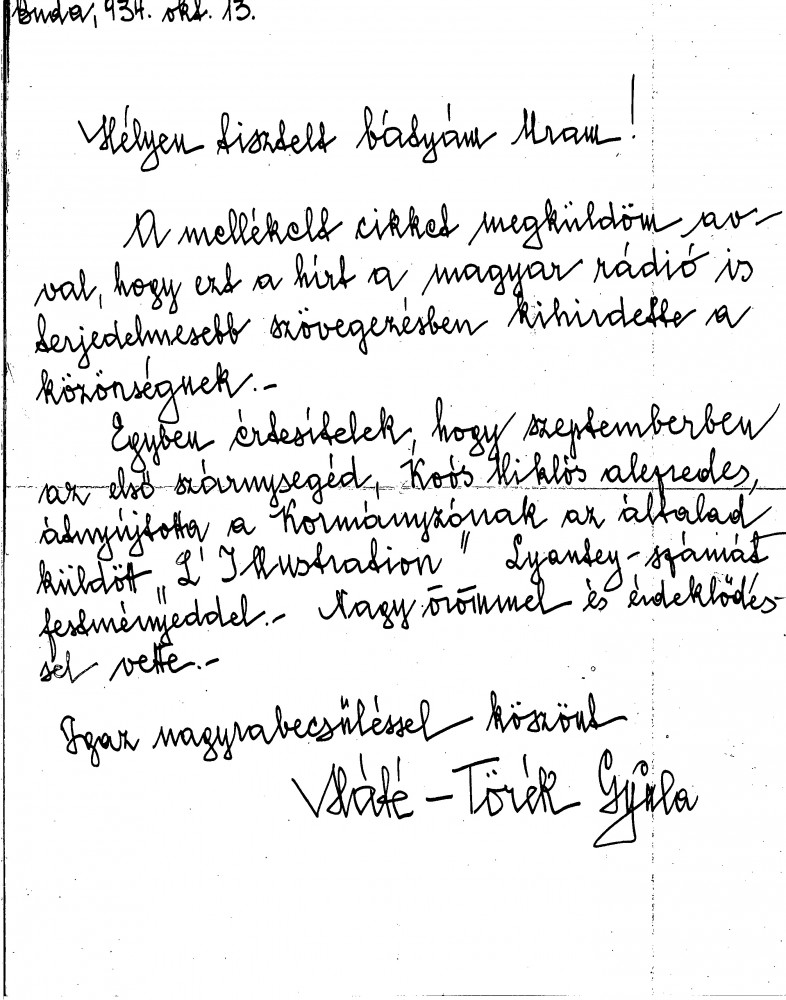 Buda, 934. okt. 13.
Mélyen tisztelt bátyám Uram!
A mellékelt cikket megküldöm av-
val, hogy ezt a hírt a magyar rádió is
terjedelmesebb szövegezésben kihirdette a
közönségnek.-
Egyben értesítelek, hogy szeptemberben
az első szárnysegéd, Koós Miklós alezredes,
átnyújtotta a Kormányzónak az általad
küldött „L'Illustration" Lyautey-számát
festményeddel.- Nagy örömmel és érdeklődés-
sel vette.-
Igaz nagyrabecsüléssel köszönt
Máté-Törék Gyula